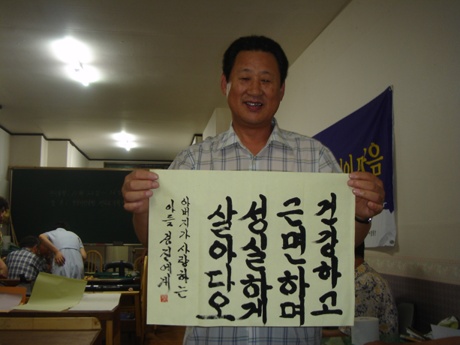 건강하고
근면하며
성실하게
살아다오
아버지가 사랑하는
아들